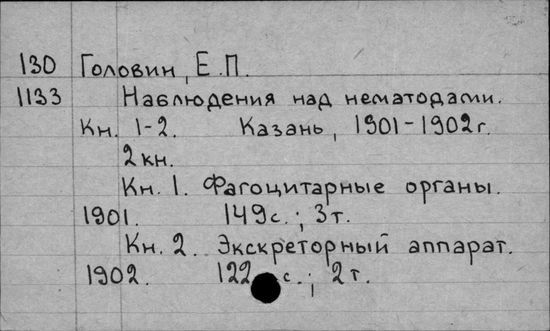 130 Головин, Е.П.
1133 Наблюдения над нематодами.
Кн. 1-2. Казань, 1901-1902г.
2кн.
Кн. 1. Фагоцитарные органы.
1901. 149с.; 3т.
Кн. 2. Экскреторный аппарат.
1902. 122 с.; 2т.